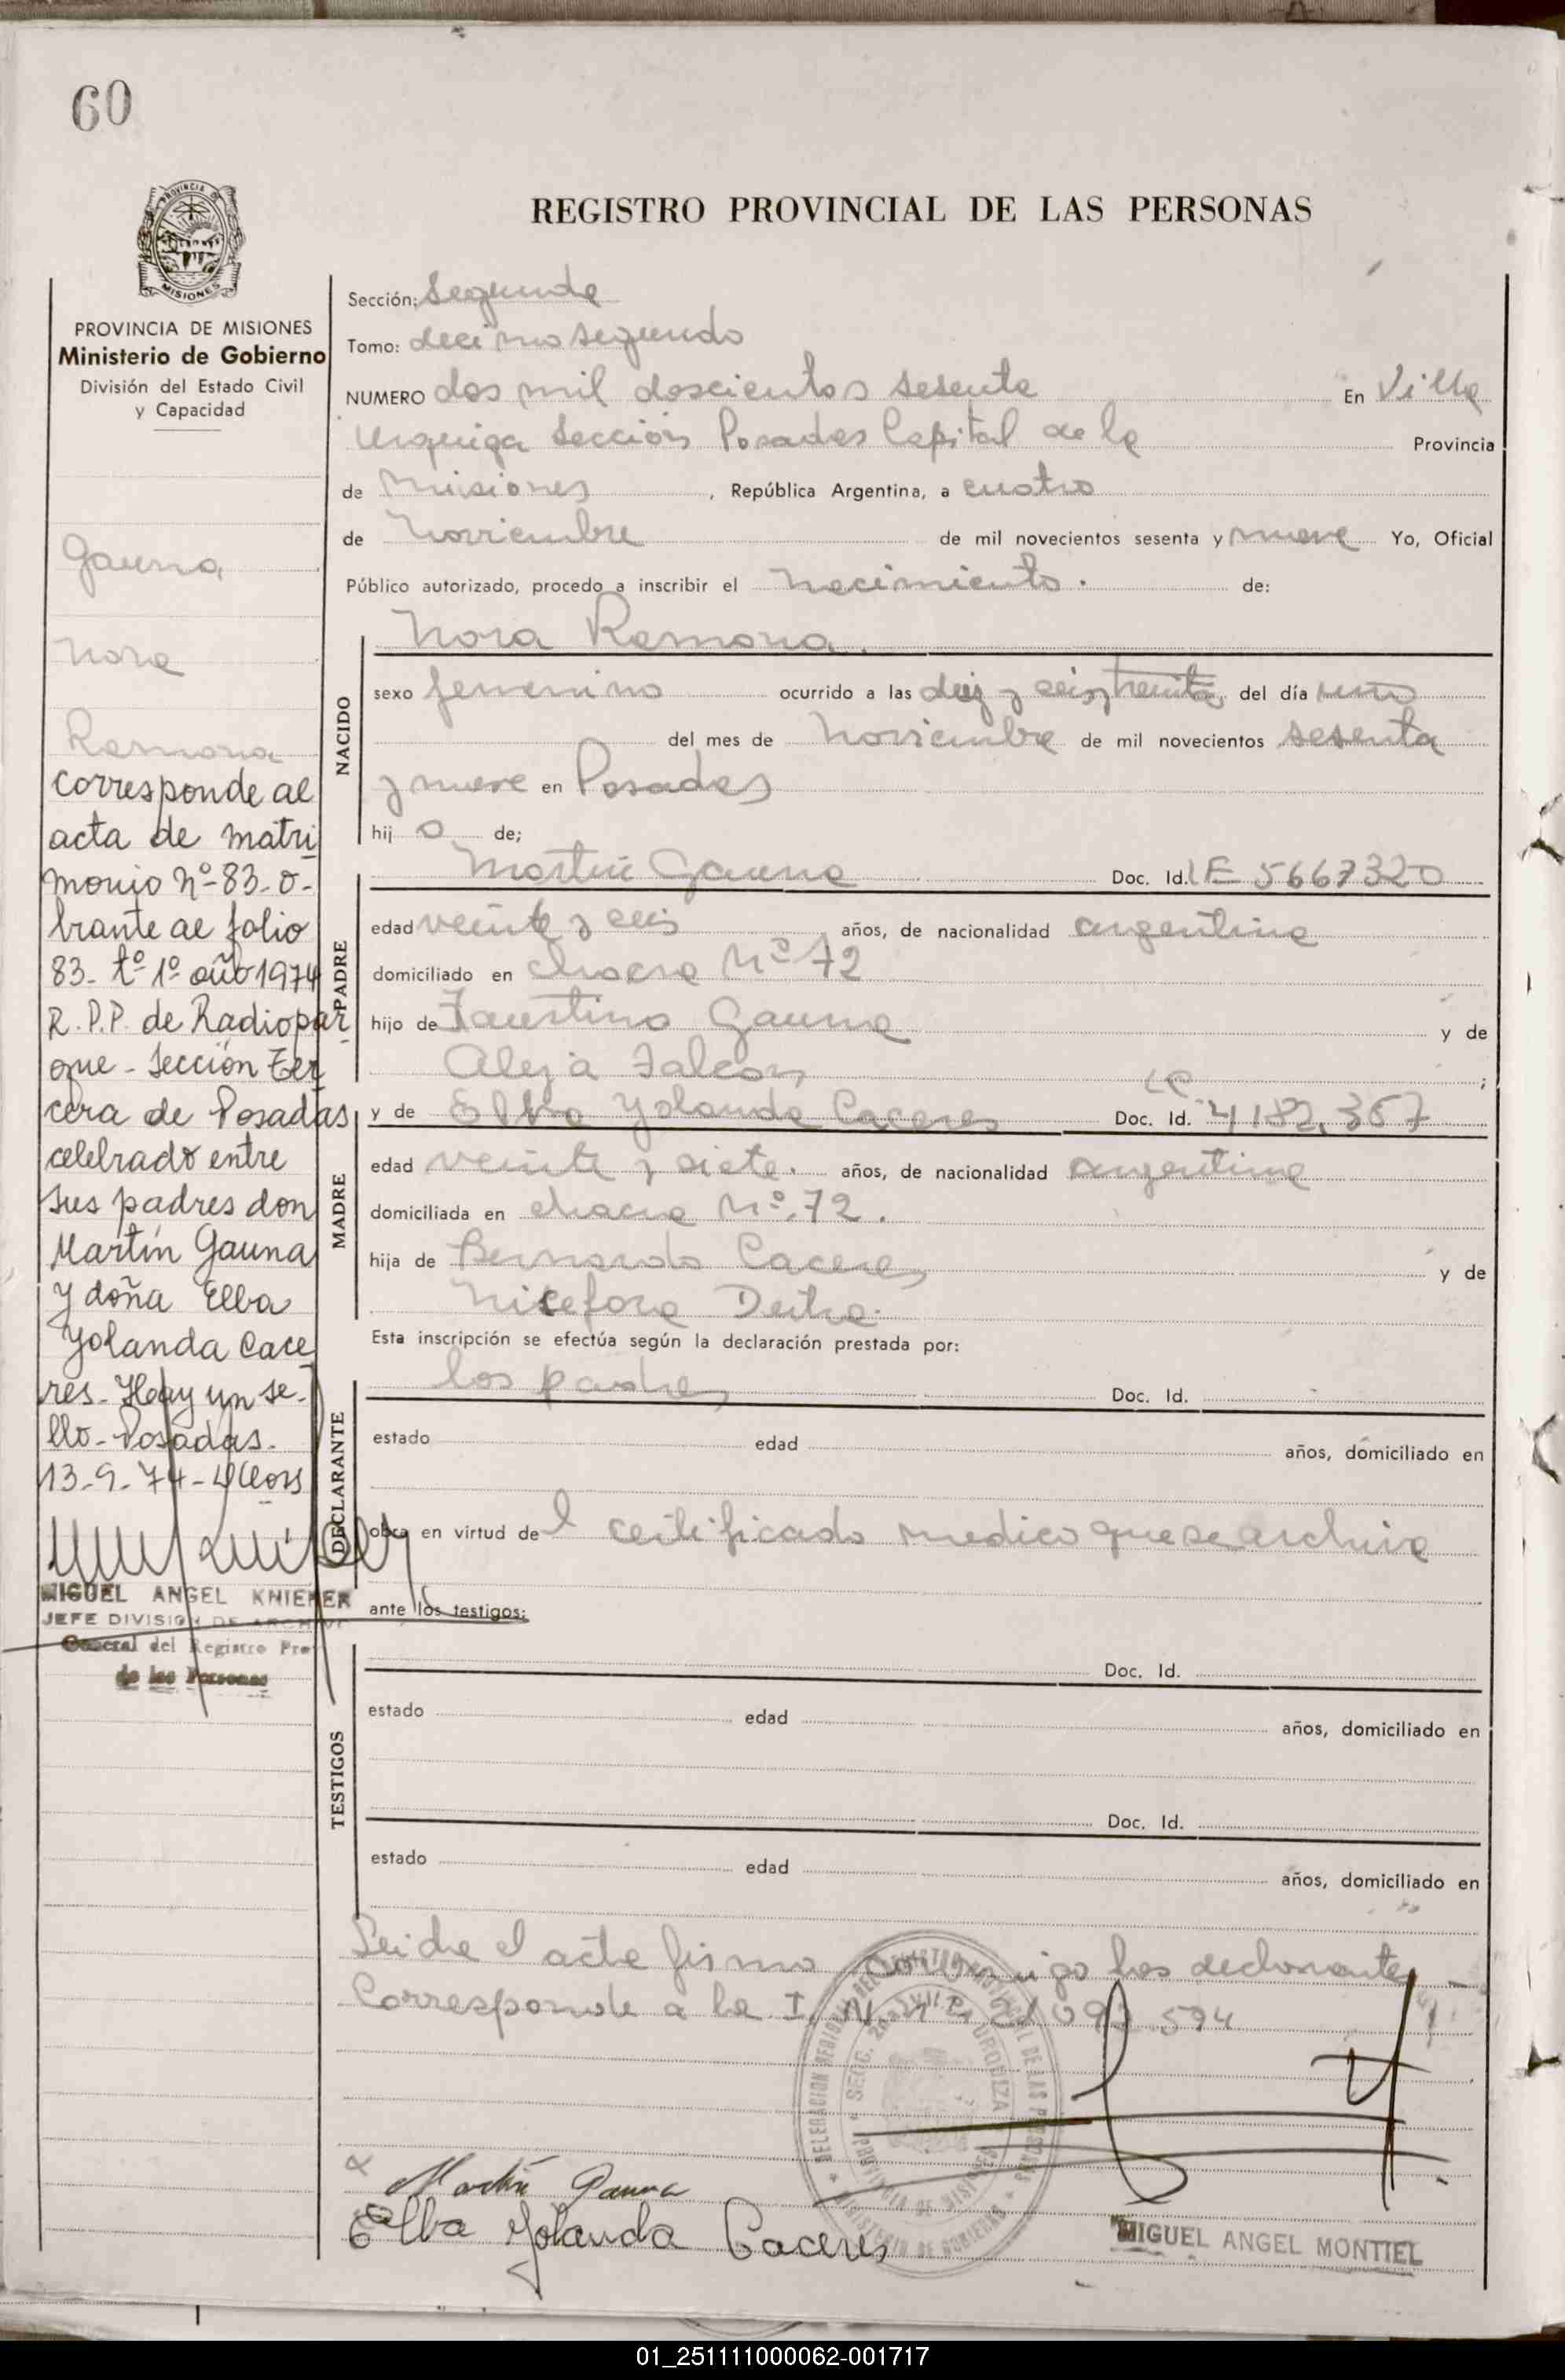 60
REGISTRO PROVINCIAL DE LAS PERSONAS
PROVINCIA DE MISIONES
Ministerio de Gobierno
División del Estado Civil
y Capacidad
Gauna
Nora
Ramona
Corresponde al
acta de matri
monio Nº 83-o-
brante al folio
83- tº 1º año 1974
R.P.P. de Radiopar
que - Sección Ter
cera de Posadas
celebrado entre
sus padres don
Martín Gauna
y doña Elba
Yolanda Cace
res- Hay un se-
llo- Posadas.
13-9-74-
MIGUEL ANGEL KNIEPER
JEFE DIVISION DE ARCHIVO
General del Registro Pro
de las Personas
Sección: Segunda
Tomo: decimo segundo
NUMERO dos mil doscientos sesenta En Villa
Urquiza Sección Posadas Capital de la Provincia
de Misiones, República Argentina, a cuatro
de Noviembre de mil novecientos sesenta y nueve Yo, Oficial
Público autorizado, procedo a inscribir el nacimiento. de:
NACIDO
Nora Ramona.
sexo femenino ocurrido a las diez y seis, treinta del día uno
del mes de Noviembre de mil novecientos sesenta
y nueve en Posadas
hij a de;
PADRE
Martín Gauna Doc. Id. LE 5667320
edad veinte y seis años, de nacionalidad argentina
domiciliado en chacra Nº 72
hijo de Faustino Gauna y de
Aleja Falcon;
MADRE
y de Elba Yolanda Caceres Doc. Id. LC 4182.367
edad veinte y siete. años, de nacionalidad argentina
domiciliada en chacra Nº.72.
hija de Bernardo Caceres y de
Nicefora
Esta inscripción se efectúa según la declaración prestada por:
DECLARANTE
los padres Doc. Id.
estado edad años, domiciliado en
obra en virtud del certificado medico que se archiva
ante los testigos:
TESTIGOS
Doc. Id.
estado edad años, domiciliado en
Doc. Id.
estado edad años, domiciliado en
Leida el acta firma conmigo los declarantes -
Corresponde a la I. N. Nº 21 093 594
DELEGACION REGIONAL DEL REGISTRO PROVINCIAL DE LAS PERSONAS
SECC. 2da VILLA URQUIZA
PROVINCIA DE MISIONES
MINISTERIO DE GOBIERNO
Martín Gauna
Elba Yolanda Caceres
MIGUEL ANGEL MONTIEL
01_251111000062-001717